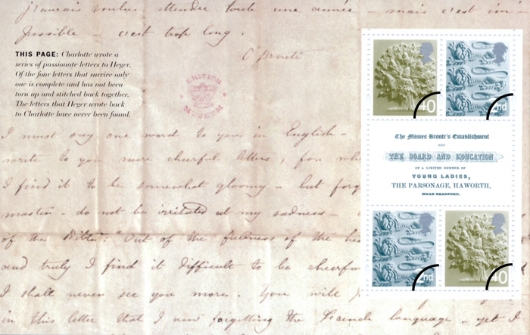 français
attendre toute une année - mais c'est im-
possible - c'est trop long.
C Brontë
THIS PAGE: Charlotte wrote a
series of passionate letters to Heger.
Of the four letters that survive only
one is complete and has not been
torn up and stitched back together.
The letters that Heger wrote back
to Charlotte have never been found.
BRITISH
MUSEUM
I must say one word to you in English -
write to you more cheerful letters, for
I find it to be somewhat gloomy - but
master - do not be irritated at my sadness -
of the Bible: "Out of the fullness of the
and truly I find it difficult to be cheerful
I shall never see you more. You will
in this letter that I am forgetting the French language - yet I
40
2nd
The Misses Brontë's Establishment
FOR
THE BOARD AND EDUCATION
OF A LIMITED NUMBER OF
YOUNG LADIES,
THE PARSONAGE, HAWORTH,
NEAR BRADFORD.
2nd
40